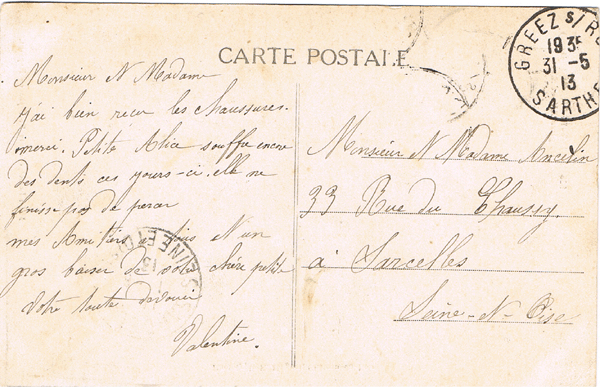 CARTE POSTALE
GREEZ s/R
19 35
31 - 5
13
SARTHE
Monsieur N Madame
j'ai bien recu les chaussures.
merci. Petite Alice souffre encore
des dents ces jours-ci. elle ne
finisse pas de percer
mes Amitiés à tous N un
gros baiser de votre chère petite
Votre toute dévouée
Valentine.
SEINE ET O
Monsieur N Madame Ancelin
33 Rue du Chaussy
à Sarcelles
Seine-N-Oise